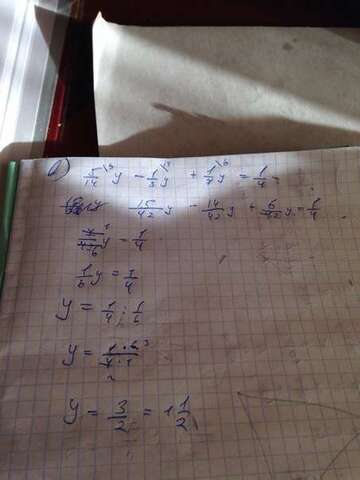 2) 5/14 \3 y - 1/3 \14 y + 1/7 \6 y = 1/4
15/42 y - 14/42 y + 6/42 y = 1/4
7/42 y = 1/4
1/6 y = 1/4
y = 1/4 : 1/6
y = 1·6 3/4·1 2
y = 3/2 = 1 1/2